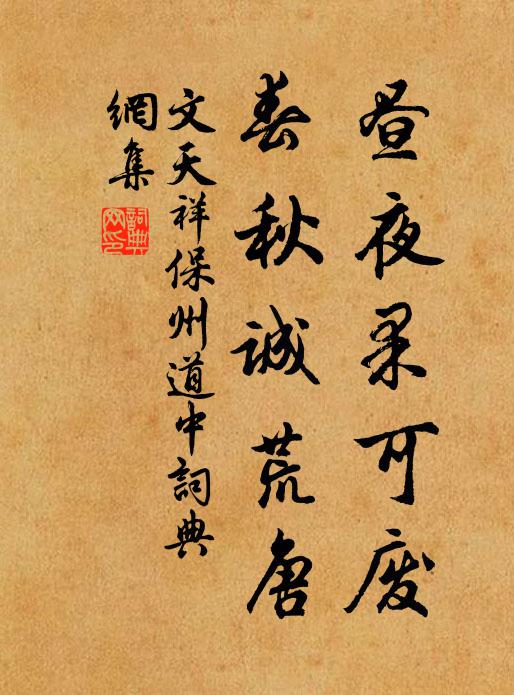 昼夜果可废
春秋誠荒唐
文天祥保州道中詞典
網集
詞典網印